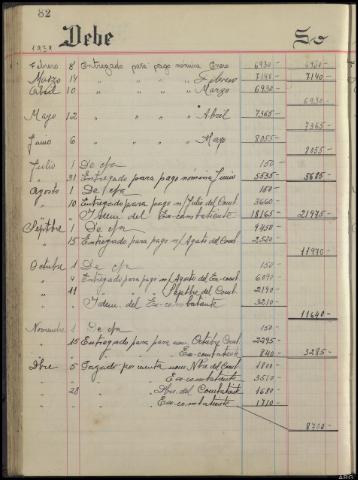 82
1938 Debe So
Febrero 8 Entregado para pago nomina Enero 6930- 6930-
Marzo 14 " " " " Febrero 7140- 7140-
Abril 10 " " " " Marzo 6930-
6930-
Mayo 12 " " " " Abril 7365-
7365-
Junio 6 " " " " Mayo 8055-
8055-
Julio 1 De cja 150-
" 31 Entregado para pago nomina Junio 5535- 5685-
Agosto 1 De cja 150-
" 10 Entregado para pago m/ Julio del Comb. 3660-
" " Idem. del Ex-combatiente 18165 21975-
Sepbre 1 De cja 9450-
" 15 Entregado para pago m/ Agosto del Comb. 2520-
11970-
Octubre 1 De cja 150-
" 4 Entregado para pago m/ Agosto del Ex-comb. 6090-
" 11 " " " " Sepbre del Comb. 2190-
" " Idem. del Ex-combatiente 3210-
11640-
Noviembre 1 De cja 150-
" 15 Entregado para pago nom. Octubre Comb. 2295-
" " " Ex-combatiente 840 3285-
Dbre 5 Pagado por cuenta nom. Nbre del Comb. 1800-
" " " Ex-combatiente 3510-
" 28 " Dbre. del Combatiente 1680-
" " " Ex-combatiente 1710-
8700-